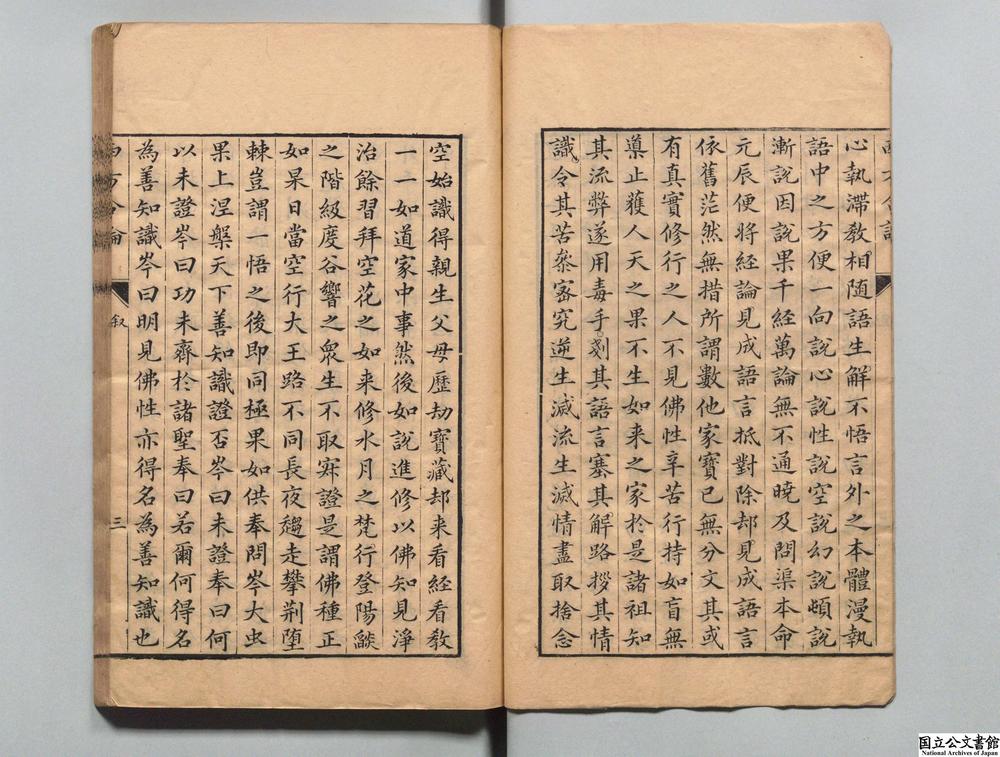 心執滯教相随語生解不悟言外之本體漫執
語中之方便一向說心說性說空說幻說頓說
漸說因說果千經萬論無不通曉及問渠本命
元辰便將經論見成語言抵對除却見成語言
依舊茫然無措所謂數他家寶已無分文其或
有真實修行之人不見佛性辛苦行持如盲無
導止獲人天之果不生如来之家於是諸祖知
其流弊遂用毒手剗其語言塞其解路拶其情
識令其苦叅宻究逆生滅流生滅情盡取捨念
空始識得親生父母歷劫寶藏却来看經看教
一一如道家中事然後如說進修以佛知見淨
治餘習拜空花之如来修水月之梵行登陽燄
之階級度谷響之衆生不取寂證是謂佛種正
如杲日當空行大王路不同長夜趨走攀荆墮
棘豈謂一悟之後即同極果如供奉問岑大虫
果上涅槃天下善知識證否岑曰未證奉曰何
以未證岑曰功未齊於諸聖奉曰若爾何得名
為善知識岑曰明見佛性亦得名為善知識也
西方合論
叙
三
国立公文書館
National Archives of Japan